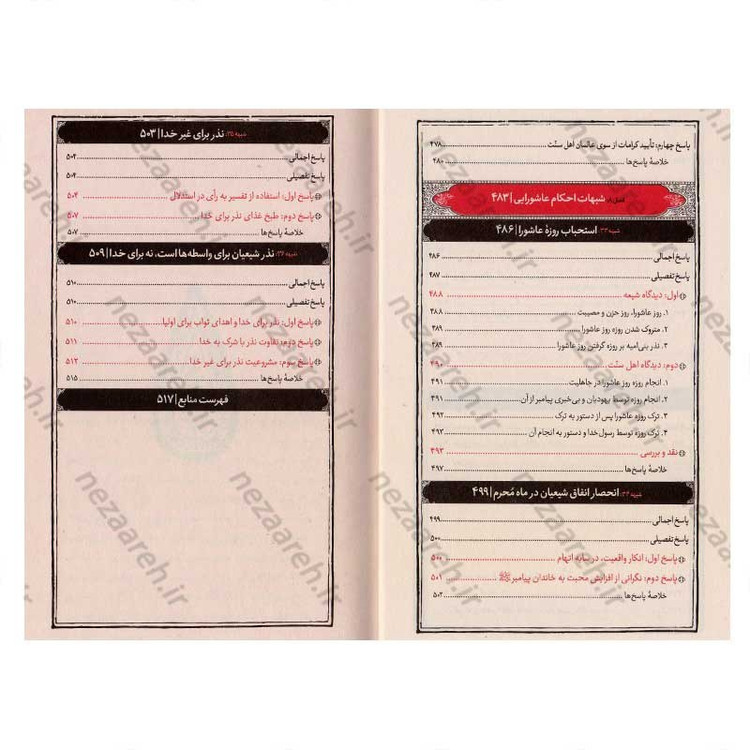 پاسخ چهارم: تأیید کرامات از سوی عالمان اهل سنّت ۴۷۸
خلاصهٔ پاسخ‌ها ۴۸۰
شبهات احکام عاشورایی | ۴۸۳
شبهه ۳۳: استحباب روزهٔ عاشورا | ۴۸۶
پاسخ اجمالی ۴۸۶
پاسخ تفصیلی ۴۸۷
اول: دیدگاه شیعه ۴۸۸
۱. روز عاشورا، روز حزن و مصیبت ۴۸۸
۲. متروک شدن روزه روز عاشورا ۴۸۹
۳. نذر بنی‌امیه بر روزه گرفتن روز عاشورا ۴۸۹
دوم: دیدگاه اهل سنّت ۴۹۰
۱. انجام روزه روز عاشورا در جاهلیت ۴۹۱
۲. انجام روزه توسط یهودیان و بی‌خبری پیامبر از آن ۴۹۱
۳. ترک روزه عاشورا پس از دستور به ترک ۴۹۲
۴. ترک روزه توسط رسول خدا و دستور به انجام آن ۴۹۳
نقد و بررسی ۴۹۳
خلاصهٔ پاسخ‌ها ۴۹۷
شبهه ۳۴: انحصار انفاق شیعیان در ماه مُحرم | ۴۹۹
پاسخ اجمالی ۴۹۹
پاسخ تفصیلی ۵۰۰
پاسخ اول: انکار واقعیت، در سایه اتهام ۵۰۰
پاسخ دوم: نگرانی از افزایش محبت به خاندان پیامبر ﷺ ۵۰۱
خلاصهٔ پاسخ‌ها ۵۰۲
شبهه ۳۵: نذر برای غیر خدا | ۵۰۳
پاسخ اجمالی ۵۰۴
پاسخ تفصیلی ۵۰۴
پاسخ اول: استفاده از تفسیر به رأی در استدلال ۵۰۴
پاسخ دوم: طبخ غذای نذر برای خدا ۵۰۷
خلاصهٔ پاسخ‌ها ۵۰۷
شبهه ۳۶: نذر شیعیان برای واسطه‌ها است، نه برای خدا | ۵۰۹
پاسخ اجمالی ۵۱۰
پاسخ تفصیلی ۵۱۰
پاسخ اول: نذر برای خدا و اهدای ثواب برای اولیا ۵۱۰
پاسخ دوم: تفاوت نذر با شرک به خدا ۵۱۱
پاسخ سوم: مشروعیت نذر برای غیر خدا ۵۱۲
خلاصهٔ پاسخ‌ها ۵۱۵
فهرست منابع | ۵۱۷
nezaareh.ir